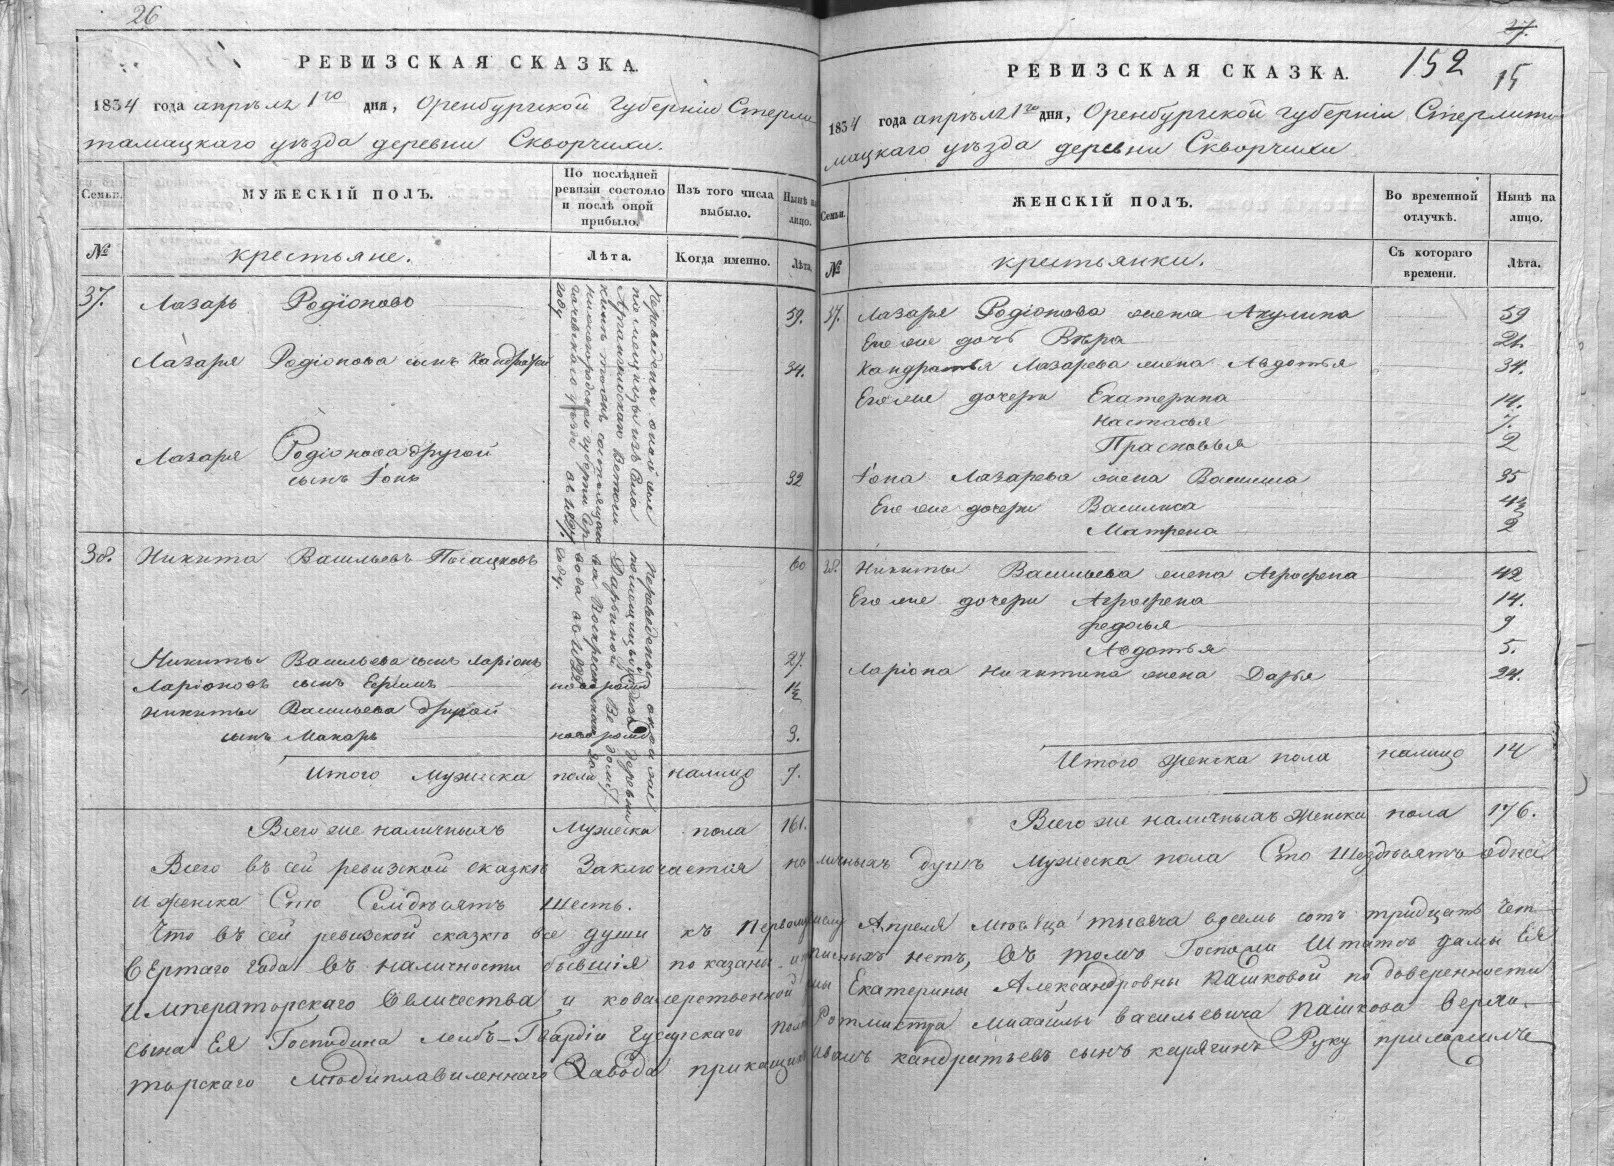 26
РЕВИЗСКАЯ СКАЗКА.
1834 года апрѣля 1го дня, Оренбургской Губерніи Стерли
тамацкаго уѣзда деревни Скворчихи.
Семьи.
МУЖЕСКІЙ ПОЛЪ.
По послѣдней ревизіи состояло и послѣ оной прибыло.
Изъ того числа выбыло.
Нынѣ на лицо.
№
крестьяне.
Лѣта.
Когда именно.
Лѣта.
37. Лазарь Родіоновъ 59.
Лазаря Родіонова сынъ Кандратій 34.
Лазаря Родіонова другой
сынъ Іона 32
38. Никита Васильевъ 60
Никиты Васильева сынъ Ларіонъ 27.
Ларіоновъ сынъ новорож 1½
Никиты Васильева другой
сынъ Макаръ новорож 3.
Итого Мужеска пола налицо 7.
Всего же наличныхъ Мужеска пола 161.
27.
152
15
РЕВИЗСКАЯ СКАЗКА.
1834 года апрѣля 1го дня, Оренбургской Губерніи Стерлита
мацкаго уѣзда деревни Скворчихи
Семьи.
ЖЕНСКІЙ ПОЛЪ.
Во временной отлучкѣ.
Нынѣ на лицо.
№
крестьянки.
Съ котораго времени.
Лѣта.
37. Лазаря Родіонова жена Акулина 59
Его же дочь Вѣра
Кандратья Лазарева жена Авдотья 34.
Его же дочери Екатерина 14.
Настасья 7.
Прасковья 2
Іона Лазарева жена 35
Его же дочери Василиса
Матрена 2
38. Никиты Васильева жена Агрофена 42
Его же дочери Агрофена 14.
Федосья 9
Авдотья 5.
Ларіона Никитина жена Дарья 24.
Итого женска пола налицо 14
Всего же наличныхъ женска пола 176.
Всего въ сей ревизской сказкѣ Заключается наличныхъ душъ Мужеска пола Сто Шездѣсятъ одна
и женска Сто Семдѣсятъ шесть.
Что въ сей ревизской сказкѣ все души къ Первому Апреля Мѣсяца тысяча восемь сотъ тридцать Чет
вертаго года въ наличности бывшія показаны и нетъ, въ томъ Госпожи Штатсъ дамы Ея
Императорскаго Величества и ковалерственной Екатерины Александровны Пашковой по доверенности
сына Ея Господина Лейбъ-Гвардіи Гусарскаго полка Ротмистра Михайлы Васильевича Пашкова Верхо
торскаго медиплавиленнаго Завода прикащикъ иванъ кандратьевъ сынъ карягинъ Руку приложилъ